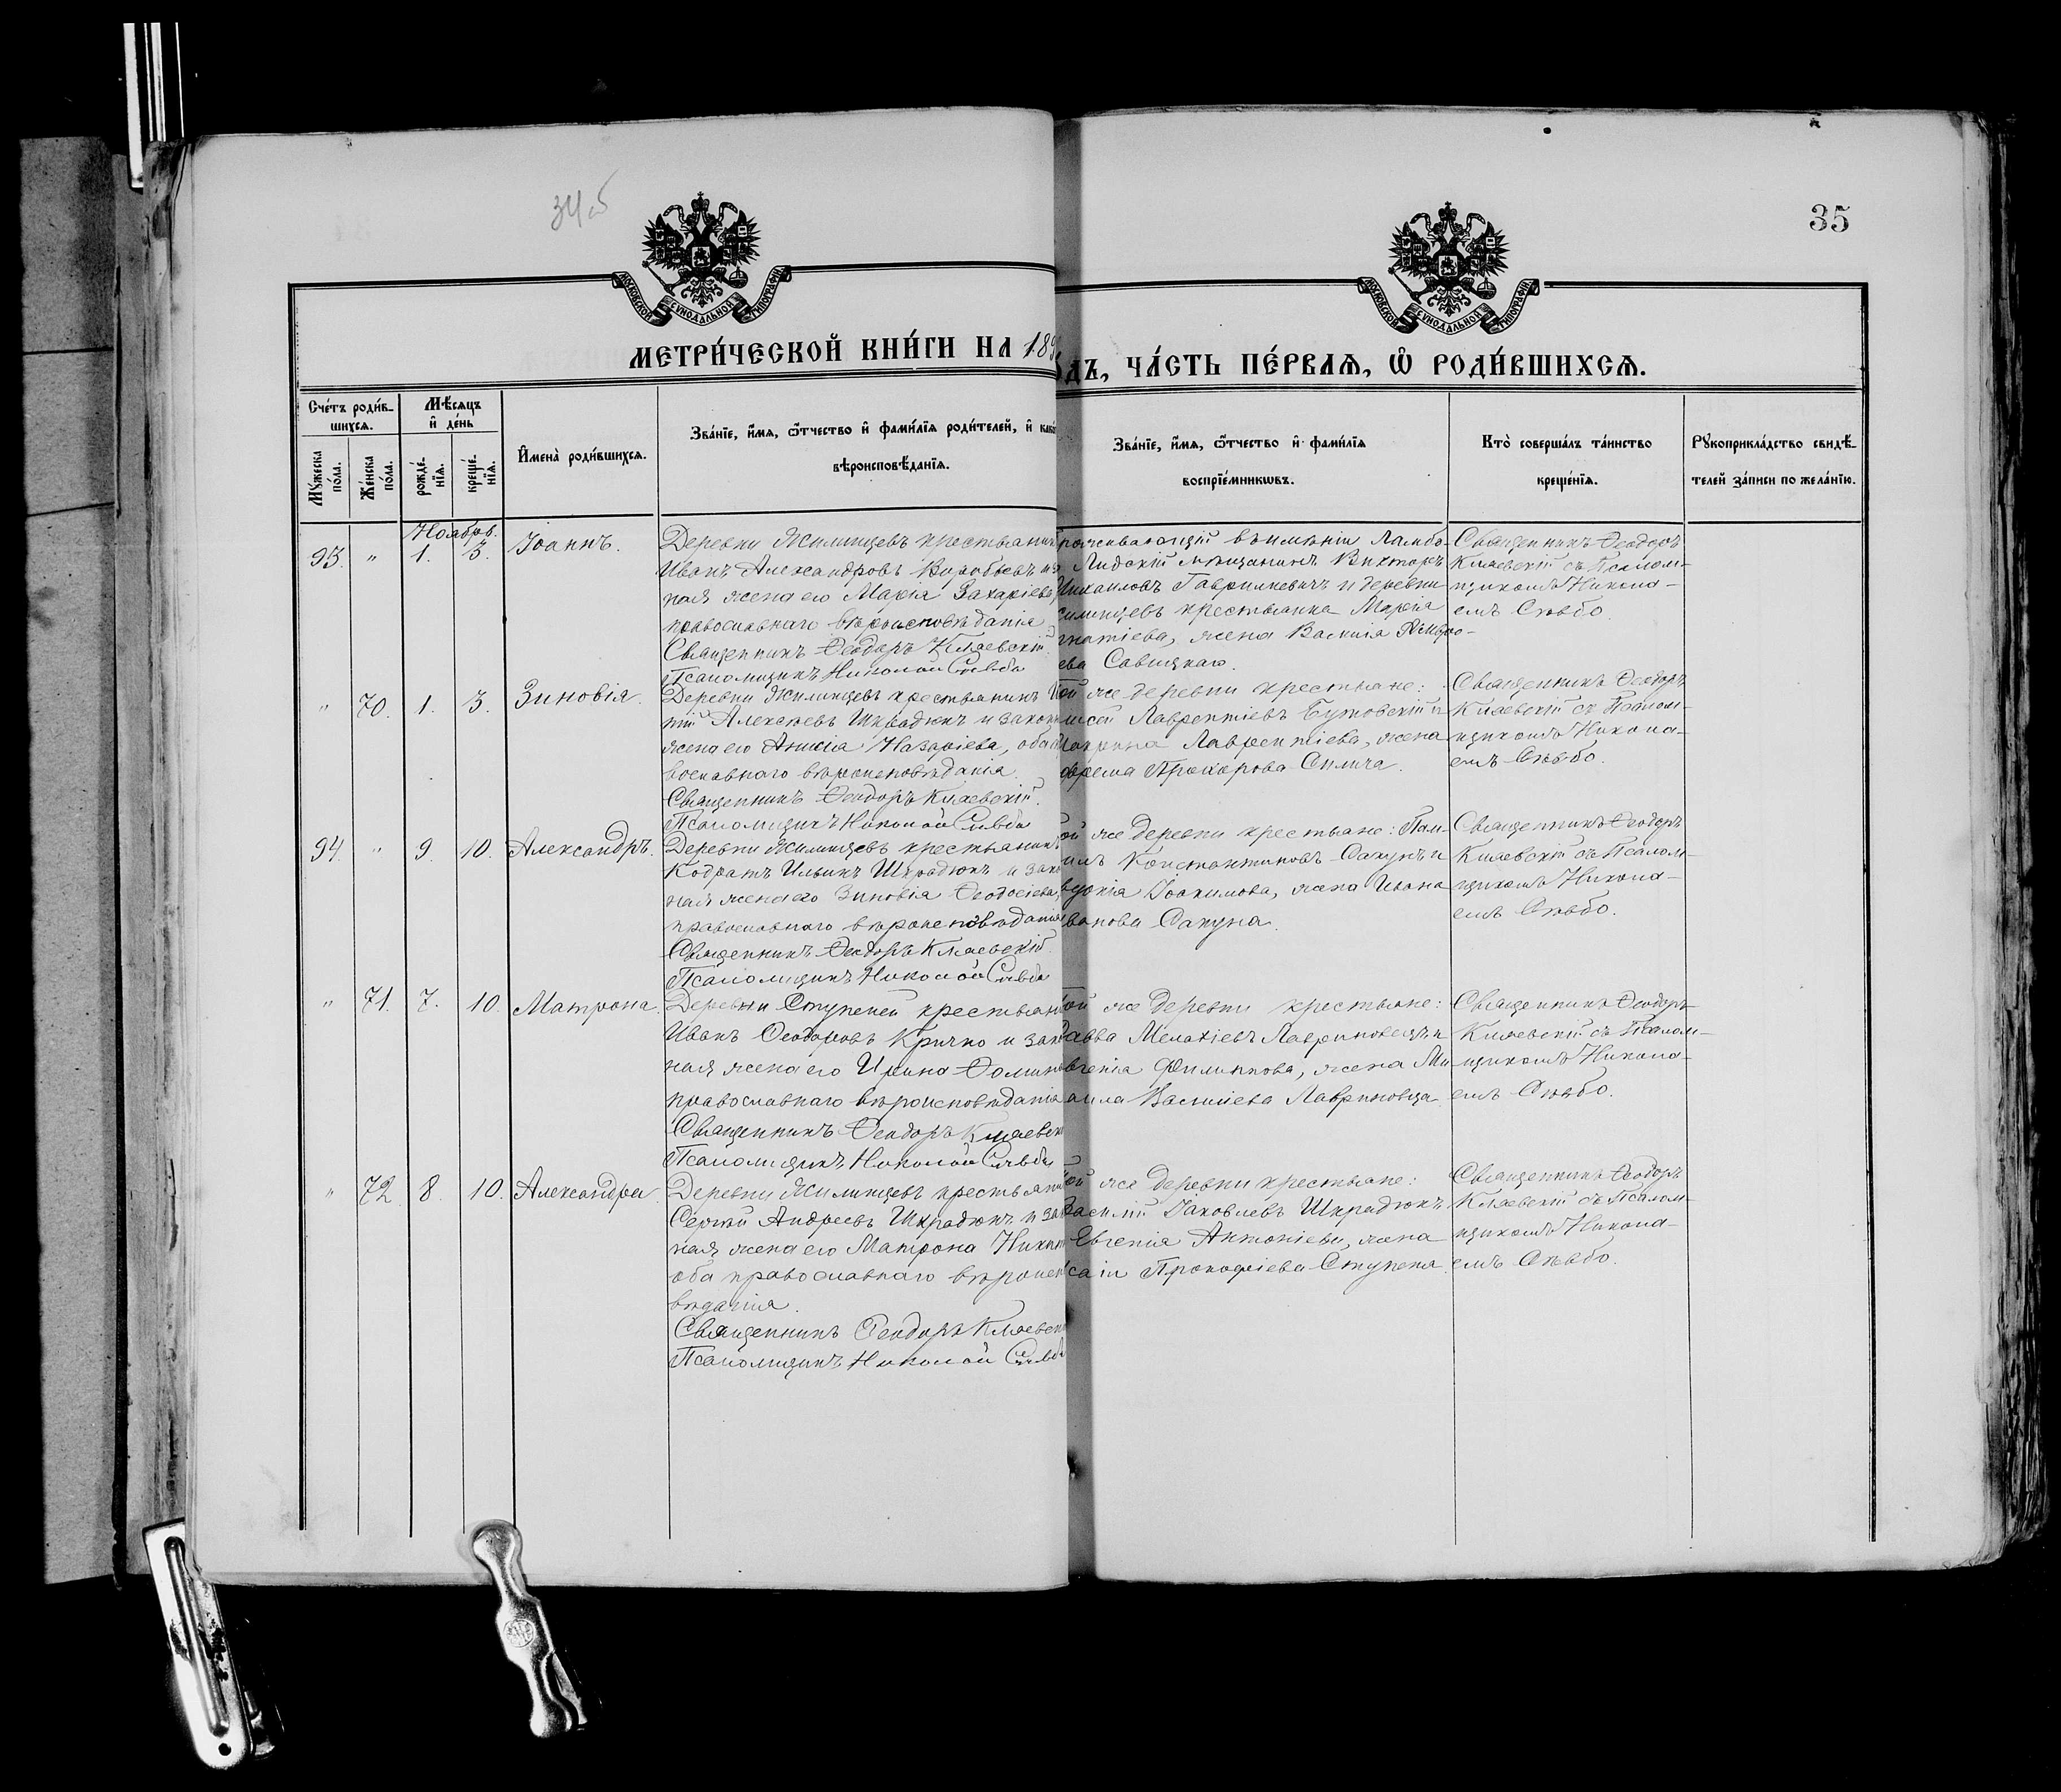 34об
35
МОСКОВСКОЙ СУНОДАЛЬНОЙ ТИПОГРАФІИ
МОСКОВСКОЙ СУНОДАЛЬНОЙ ТИПОГРАФІИ
МЕТРИ́ЧЕСКОЙ КНИ́ГИ НА 189
ДЪ, ЧА́СТЬ ПЕ́РВАЯ, Ѿ РОДИ́ВШИХСЯ.
Сче́тъ роди́в-
шихся.
Му́жеска по́ла.
Же́нска по́ла.
Мѣ́сяцъ
и҆ де́нь
рожде́-
нїя.
креще́-
нїя.
И҆мена̀ роди́вшихся.
Зва́нїе, и҆́мя, ѻ҆́тчество и҆ фами́лїя роди́телей, и҆
вѣроисповѣ́данїя.
Зва́нїе, и҆́мя, ѻ҆́тчество и҆ фами́лїя
воспрїе́мникѡвъ.
Кто̀ соверша́лъ та́инство
креще́нїя.
Рꙋкоприкла́дство свидѣ́-
телей за́писи по жела́нїю.
Ноябрь.
93. " 1. 3. Іоаннъ.
Деревни Жилинцевъ крестьянинъ
Иванъ Александровъ Воробьевъ и
ная жена его Марія Захаріева
православнаго вѣроисповѣданія
Священникъ Ѳеодоръ Кляевскій
Псаломщикъ Николай Слѣбо
проживающій въ имѣніи
Лидскій мѣщанинъ Викторъ
Михаиловъ Гаврилкевичъ и деревни
илинцевъ крестьянка Марія
гнатіева, жена Василія
ева Савицкаго.
Священникъ Ѳеодоръ
Кляевскій съ Псалом-
щикомъ Никола-
емъ Слѣбо.
" 70. 1. 3. Зиновія.
Деревни Жилинцевъ крестьянинъ
тій Алексѣевъ Шкрадюкъ и закон
жена его Анисія Назаріева, оба
вославнаго вѣроисповѣданія.
Священникъ Ѳеодоръ Кляевскій.
Псаломщикъ Николай Слѣбо
ой же деревни крестьяне:
исей Лаврентіевъ Бутовскій и
Лаврентіева, жена
фрема Прохорова Силича.
Священникъ Ѳеодоръ
Кляевскій съ Псалом-
щикомъ Никола-
емъ Слѣбо.
94. " 9. 10. Александръ.
Деревни Жилинцевъ крестьянинъ
Кодратъ Ильинъ Шкрадюкъ и зако
ная жена его Зиновія Ѳеодосіева,
православнаго вѣроисповѣданія
Священникъ Ѳеодоръ Кляевскій
Псаломщикъ Николай Слѣбо
ой же деревни крестьяне: Пам-
илъ Константиновъ Сакунъ и
вдокія Іоакимова, жена Ивана
ванова Сакуна.
Священникъ Ѳеодоръ
Кляевскій съ Псалом-
щикомъ Никола-
емъ Слѣбо.
" 71. 7. 10. Матрона.
Деревни Ступеней крестьянинъ
Иванъ Ѳеодоровъ Кричко и зак
ная жена его Ирина
православнаго вѣроисповѣданія
Священникъ Ѳеодоръ Кляевск
Псаломщикъ Николай Слѣбо
ой же деревни крестьяне:
Савва Лавриновецъ и
вгенія Филиппова, жена Ми
аила Василіева Лавриновца
Священникъ Ѳеодоръ
Кляевскій съ Псалом-
щикомъ Никола-
емъ Слѣбо.
" 72. 8. 10. Александра.
Деревни Жилинцевъ крестьянин
Сергій Андреевъ Шкрадюкъ и зак
ная жена его Матрона Никит
оба православнаго вѣроиспо
вѣданія.
Священникъ Ѳеодоръ Кляевск
Псаломщикъ Николай Слѣбо
ой же деревни крестьяне:
Василій Іаковлевъ Шкрадюкъ
Евгенія Антоніева, жена
саіи Прокофіева Ступеня
Священникъ Ѳеодоръ
Кляевскій съ Псалом-
щикомъ Никола-
емъ Слѣбо.